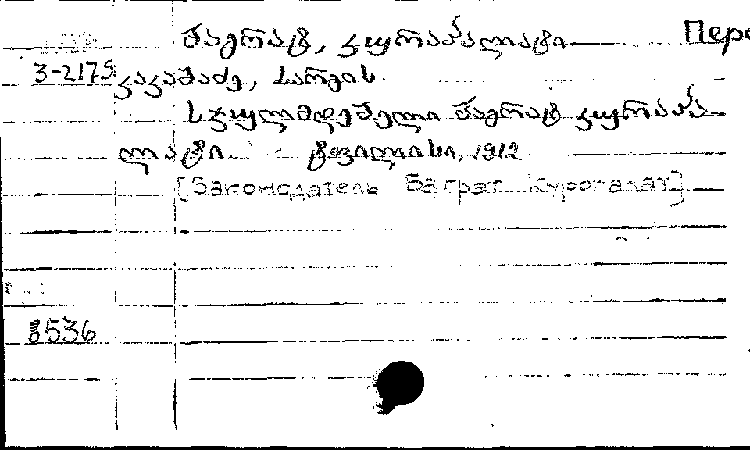 ბაგრატ, კურაპალატი Пере
3-2175 კაკაბაძე, სარგის
სჯულმდებელი ბაგრატ კურაპა
ლატი. ტფილისი, 1912
[Законодатель Баграт Курогалат]
8536